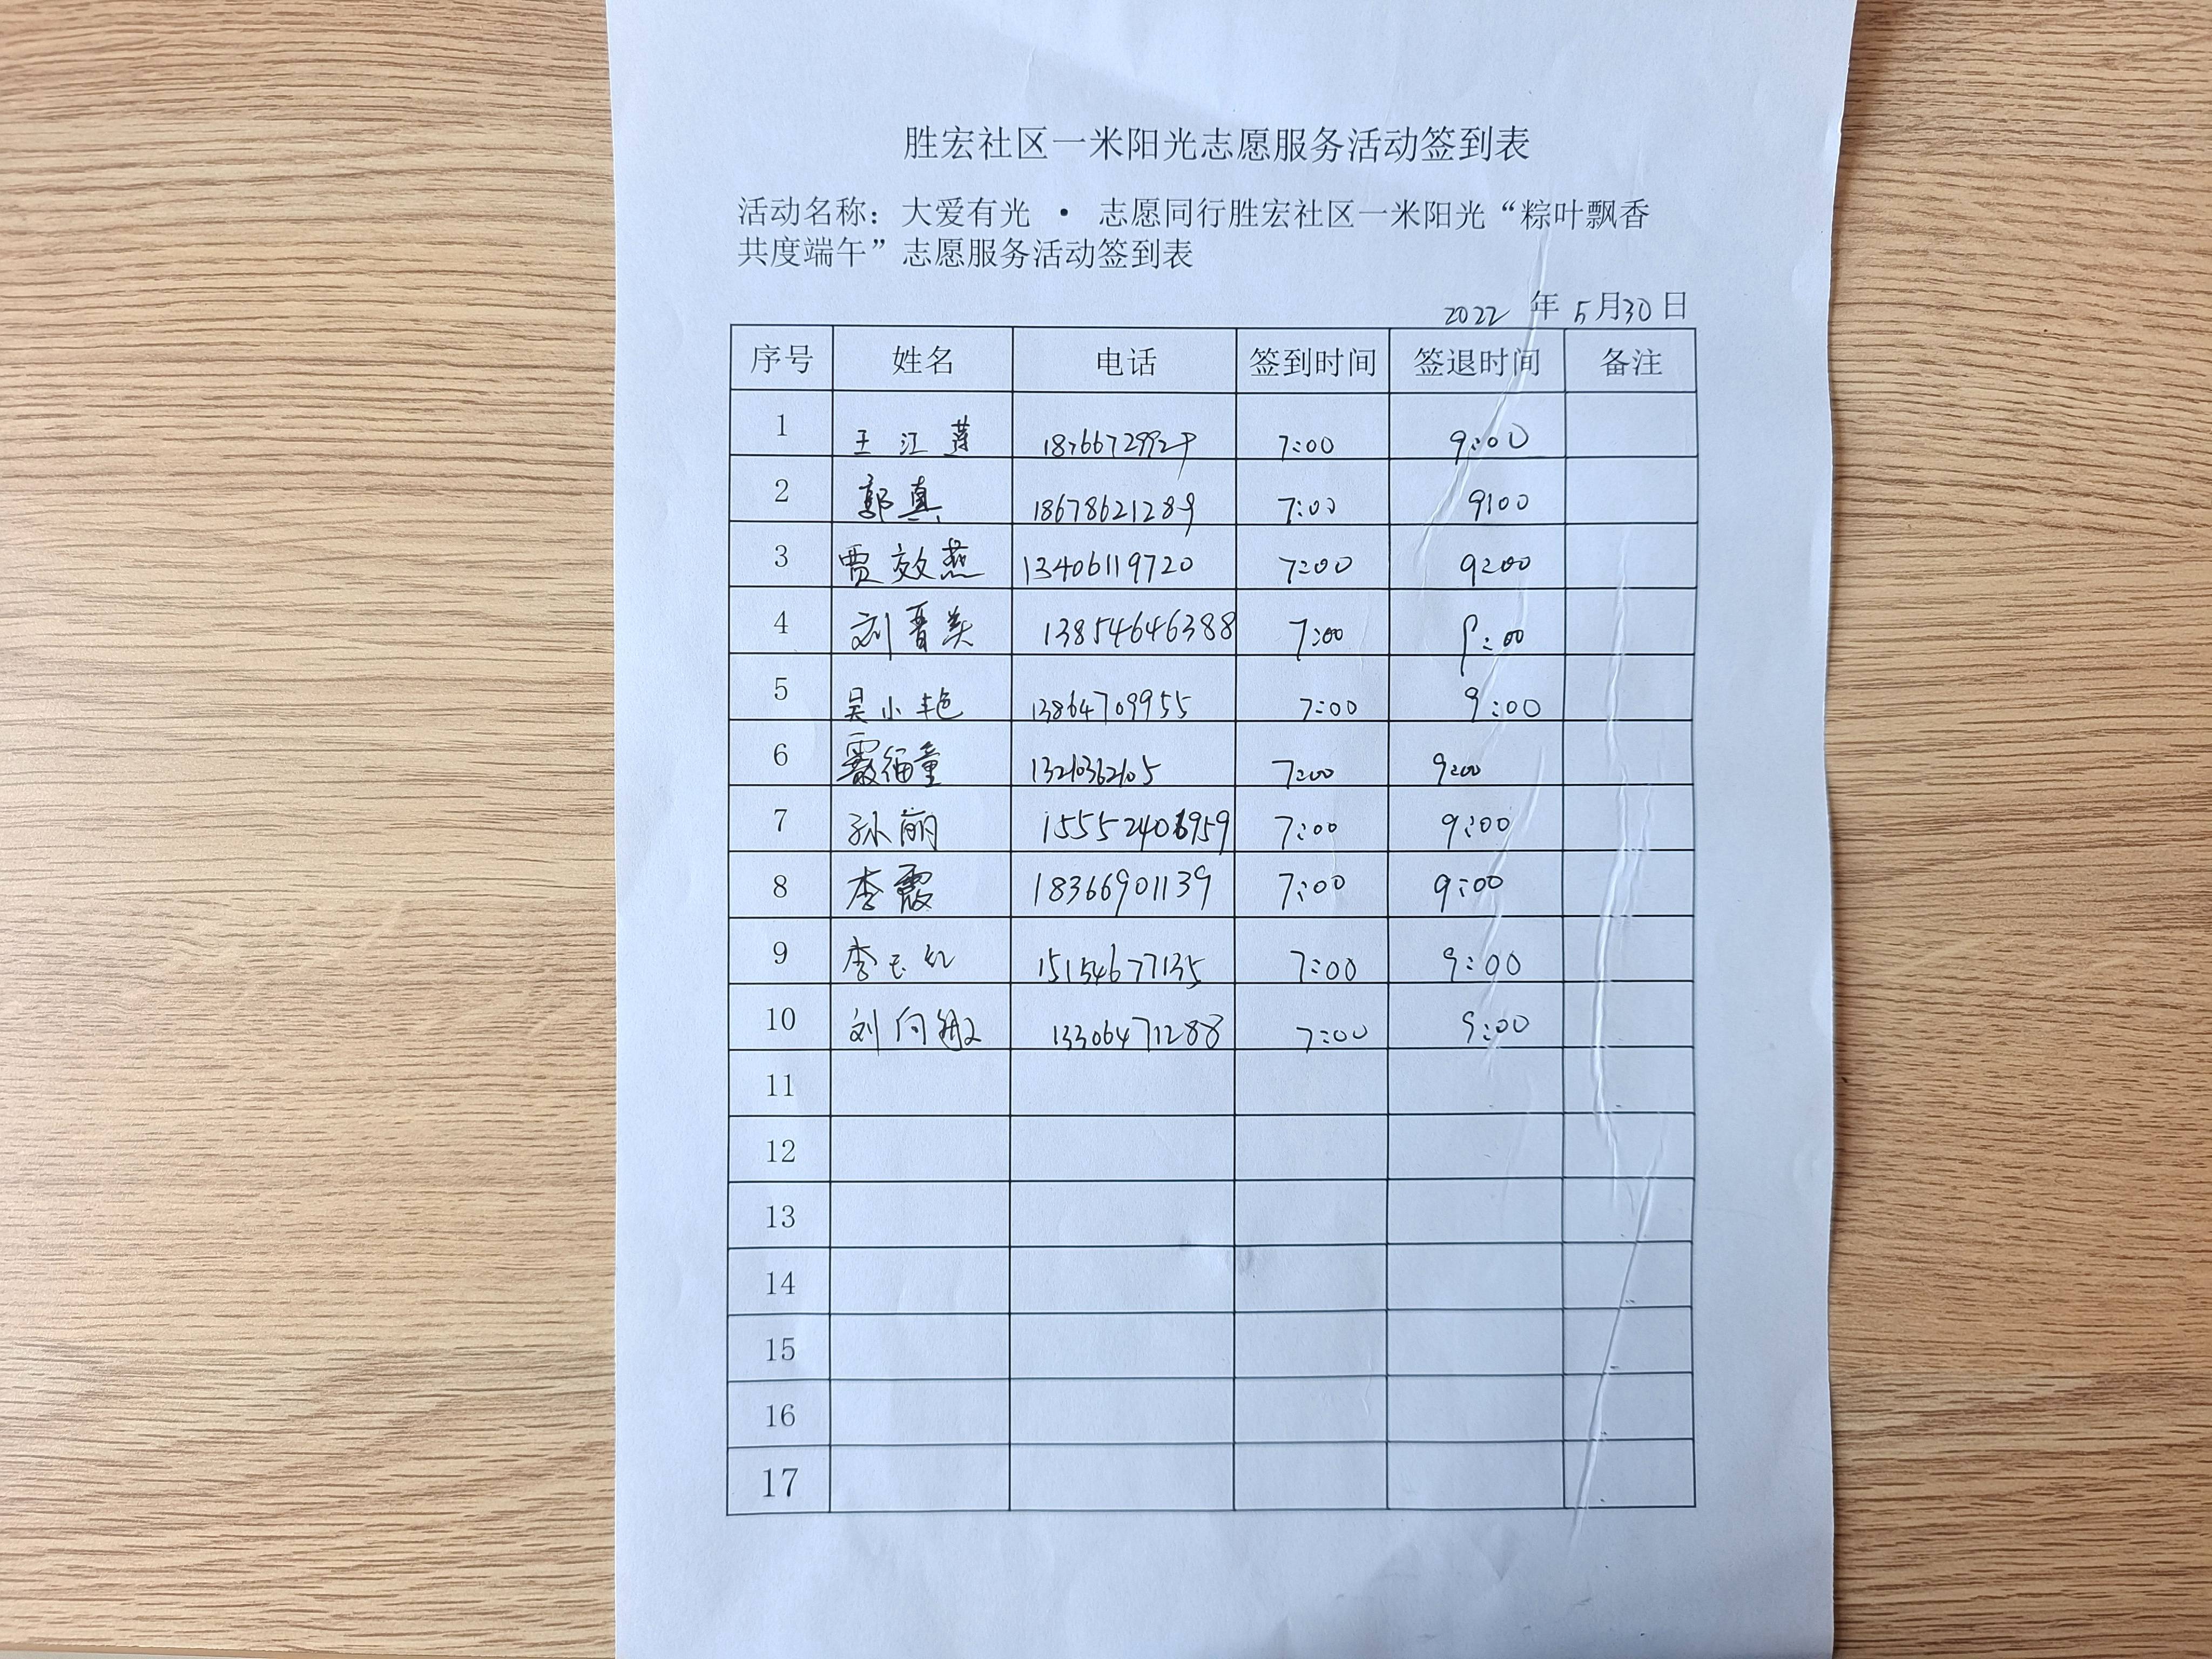 胜宏社区一米阳光志愿服务活动签到表
活动名称：大爱有光 · 志愿同行胜宏社区一米阳光“粽叶飘香
共度端午”志愿服务活动签到表
2022 年 5月30日
序号 姓名 电话 签到时间 签退时间 备注
1 王江 7:00 9:00
2 郭真 18678621289 7:00 9:00
3 贾效燕 13406119720 7:00 9:00
4 刘晋美 13854646388 7:00 9:00
5 吴小艳 13864709955 7:00 9:00
6 7:00 9:00
7 孙丽 15552406959 7:00 9:00
8 李霞 18366901139 7:00 9:00
9 李玉红 15154677135 7:00 9:00
10 刘向敏 13306471288 7:00 9:00
11
12
13
14
15
16
17